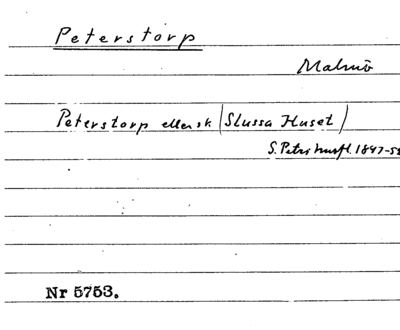 Peterstorp
Malmö
Peterstorp eller sk (Slussa Huset)
S. Petri husfl. 1847-58
Nr 5753.